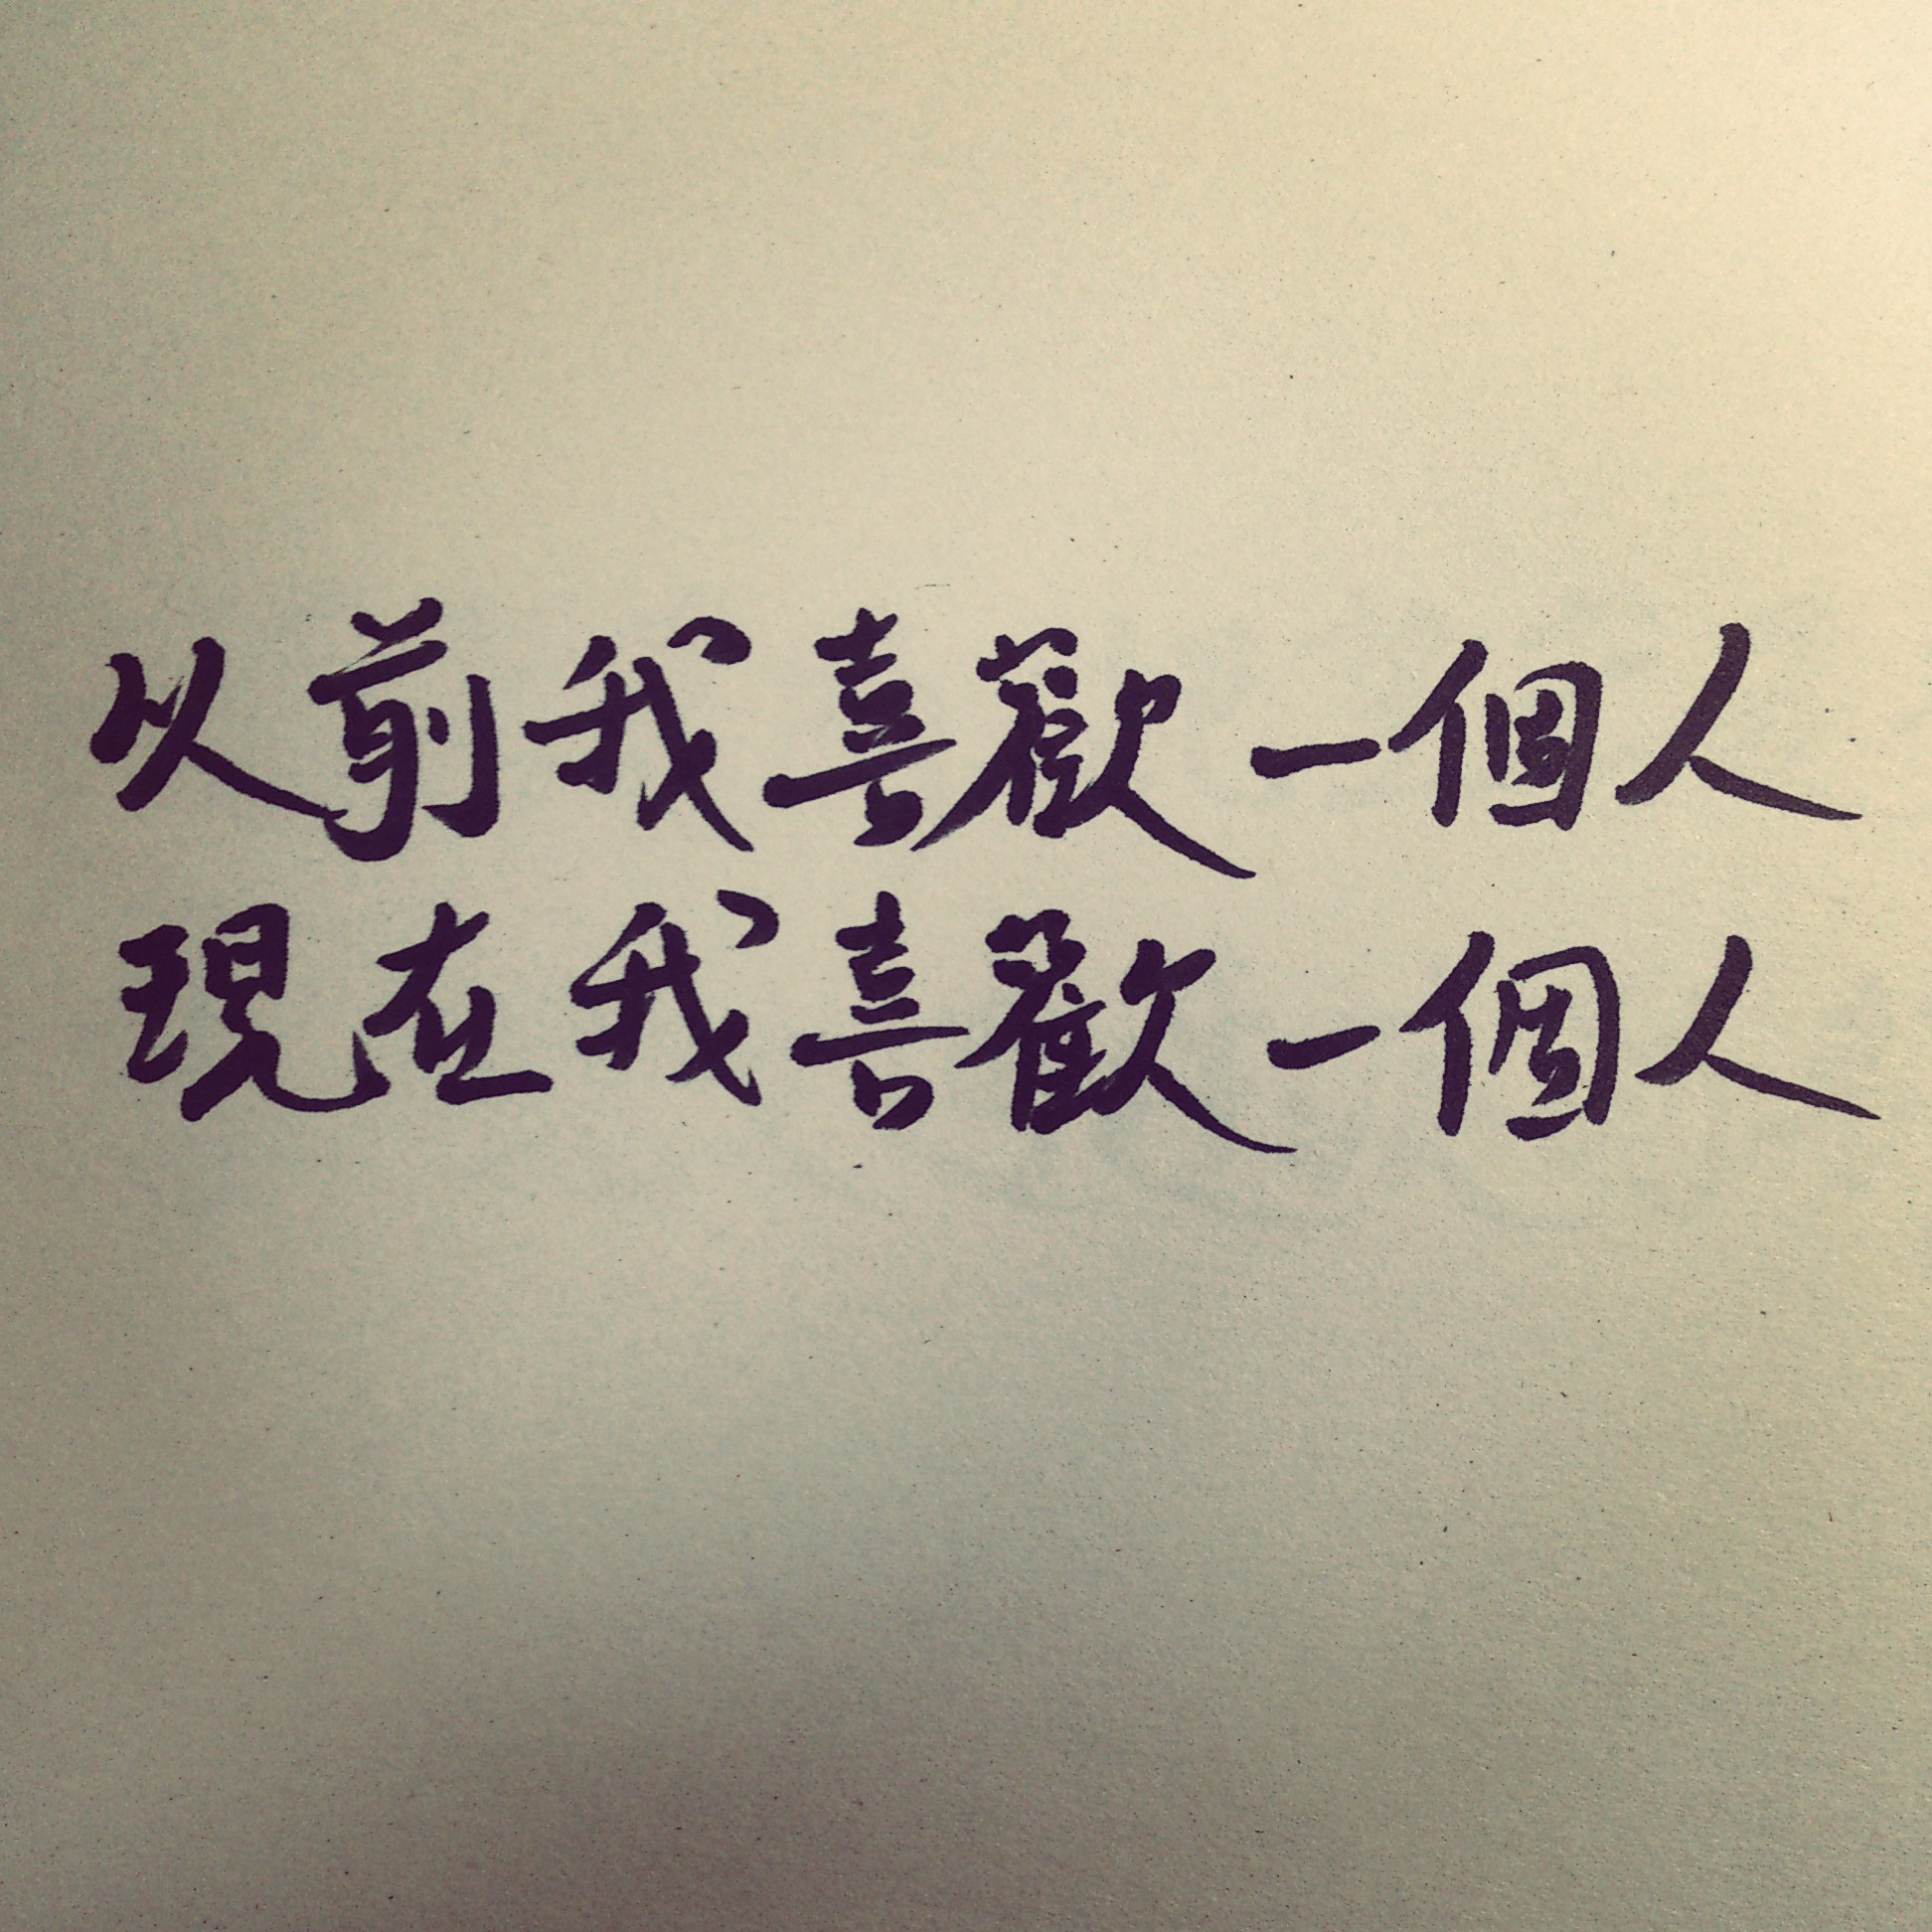 以前我喜歡一個人
現在我喜歡一個人